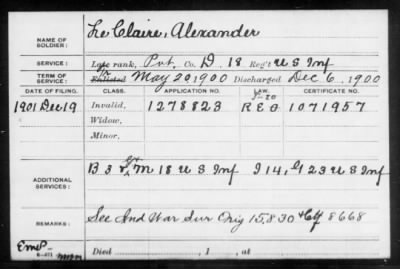 NAME OF SOLDIER: Le Claire, Alexander
SERVICE: Late rank, Pvt. Co. D, 18 Reg't U S Inf
TERM OF SERVICE: Enlisted May 20 1900 Discharged Dec 6, 1900
DATE OF FILING. CLASS. APPLICATION NO. LAW. CERTIFICATE NO.
1901 Dec 19 Invalid, 1278823 REG 1071957
Widow,
Minor,
ADDITIONAL SERVICES: B 3 M 18 U S Inf I 14, G 23 U S Inf
REMARKS: See Ind War Sur Orig 15,830 Ctf 8668
Died , 1 , at